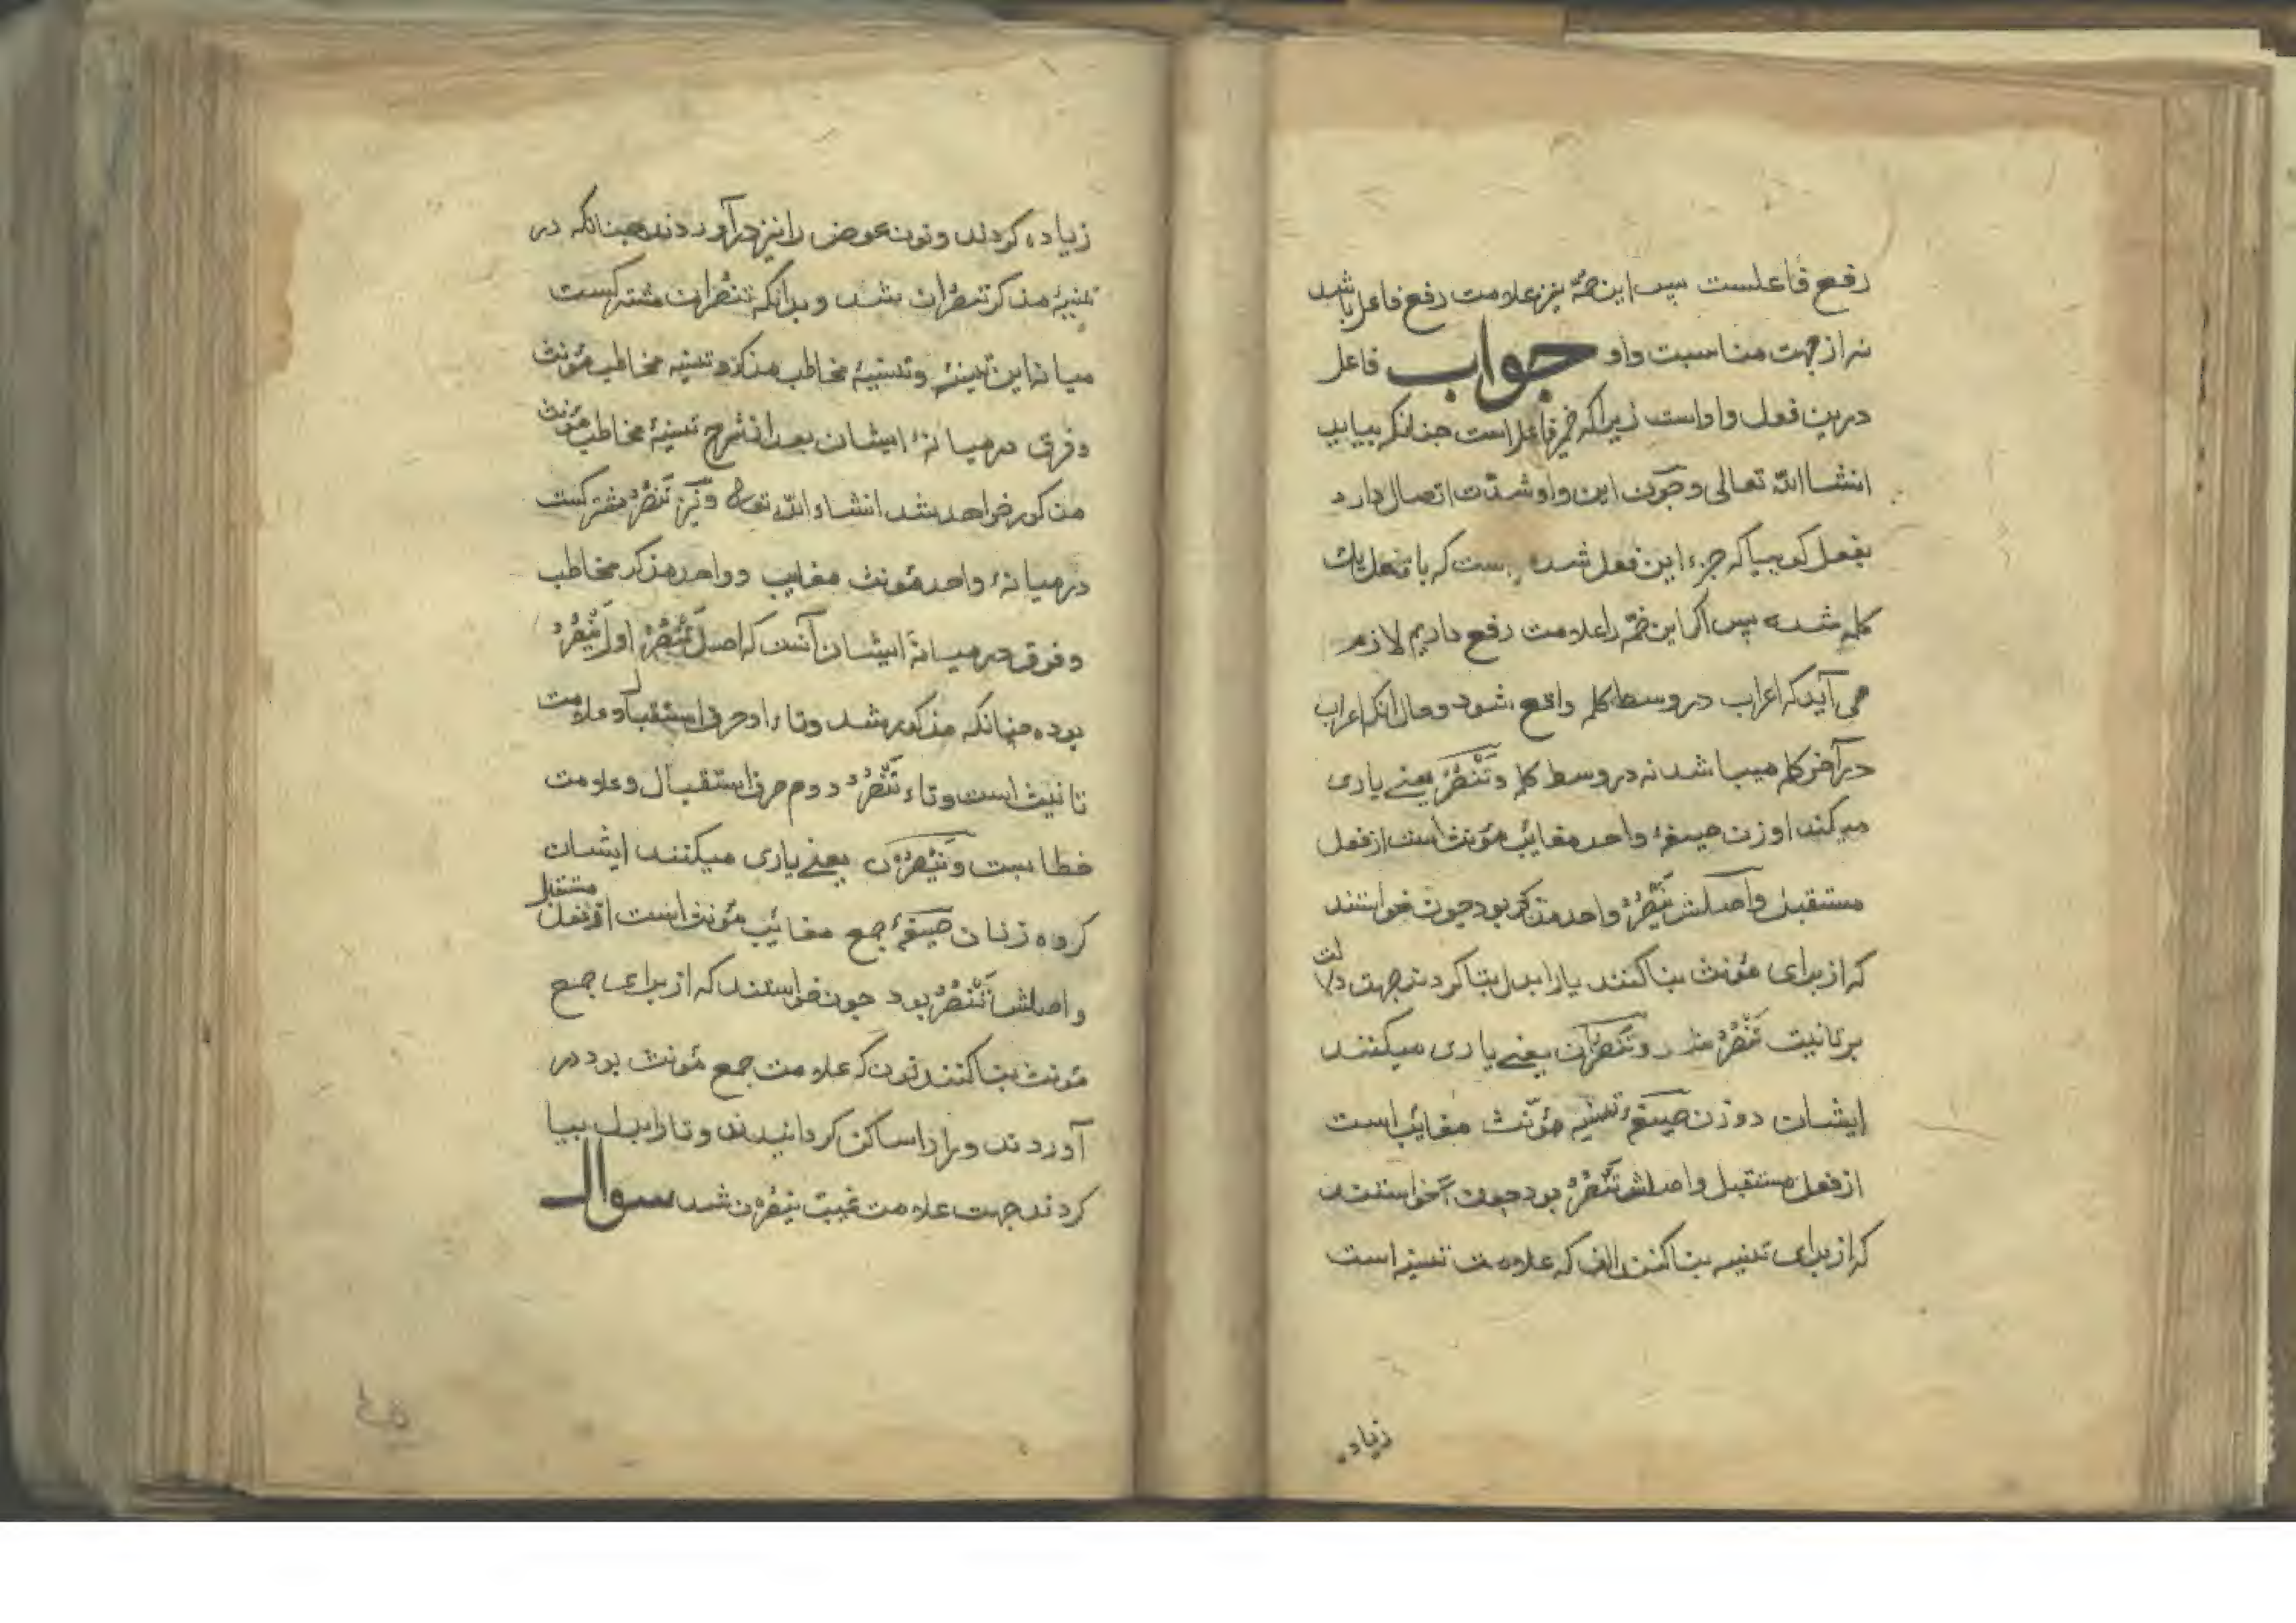 رفع فاعلست پس این ضمّه نیز علامت رفع فاعل باشد
نه از جهت مناسبت واو جواب فاعل
درین فعل واو است زیرا که ضمیر فاعل است چنانکه بیاید
انشاالله تعالی و چون این واو شدّت اتصال دارد
بفعل کوییا که جزء این فعل شده است که با فعل یک
کلمه شده پس اکر این ضمّه را علامت رفع داریم لازم
می آید که اعراب در وسط کلمه واقع شود و حال انکه اعراب
در آخر کلمه میباشد نه در وسط کلمه و تَنْصُرُ یعنے یاری
میکند او زن صیغهٔ واحد مغایب مؤنث است از فعل
مستقبل و اصلش یَنْصُرُ واحد مذکر بود چون خواستند
که از برای مؤنث بنا کنند یا را بدل بتا کردند جهت دلالت
بر تانیث تَنْصُرُ شد و تَنْصُرَانِ یعنے یاری میکنند
ایشان دو زن صیغهٔ تثنیه مؤنث مغایب است
از فعل مستقبل و اصلش تَنْصُرُ بود چون خواستند
که از برای تثنیه بنا کنند الف که علامت تثنیه است
زیاده
زیاده کردند و نون عوض را نیز در آوردند چنانکه در
تثنیهٔ مذکر تنصران شد و بدانکه تنصران مشترکست
میانه این تثنیه و تثنیهٔ مخاطب مذکر و تثنیه مخاطب مؤنث
و فرق در میانهٔ ایشان بعد از شرح تثنیهٔ مخاطب مؤنث
مذکور خواهد شد انشاء الله تعالی و نیز تَنْصُرُ مشترکست
در میانهٔ واحد مؤنث مغایب و واحد مذکر مخاطب
و فرق در میانهٔ ایشان آنست که اصل تَنْصُرُ اول یَنْصُرُ
بوده چنانکه مذکور شد و تاء او حرف استقبال و علامت
تانیث است و تاء تَنْصُرُ دوم حرف استقبال و علامت
خطابست و یَنْصُرْنَ یعنے یاری میکنند ایشان
کروه زنان صیغهٔ جمع مغایب مؤنث است از فعل مستقبل
و اصلش تَنْصُرُ بود چون خواستند که از برای جمع
مؤنث بنا کنند نون که علامت جمع مؤنث بود در
آوردند و را را ساکن کردانیدند و تا را بدل بیا
کردند جهت علامت غیبت ینصرن شد سوال